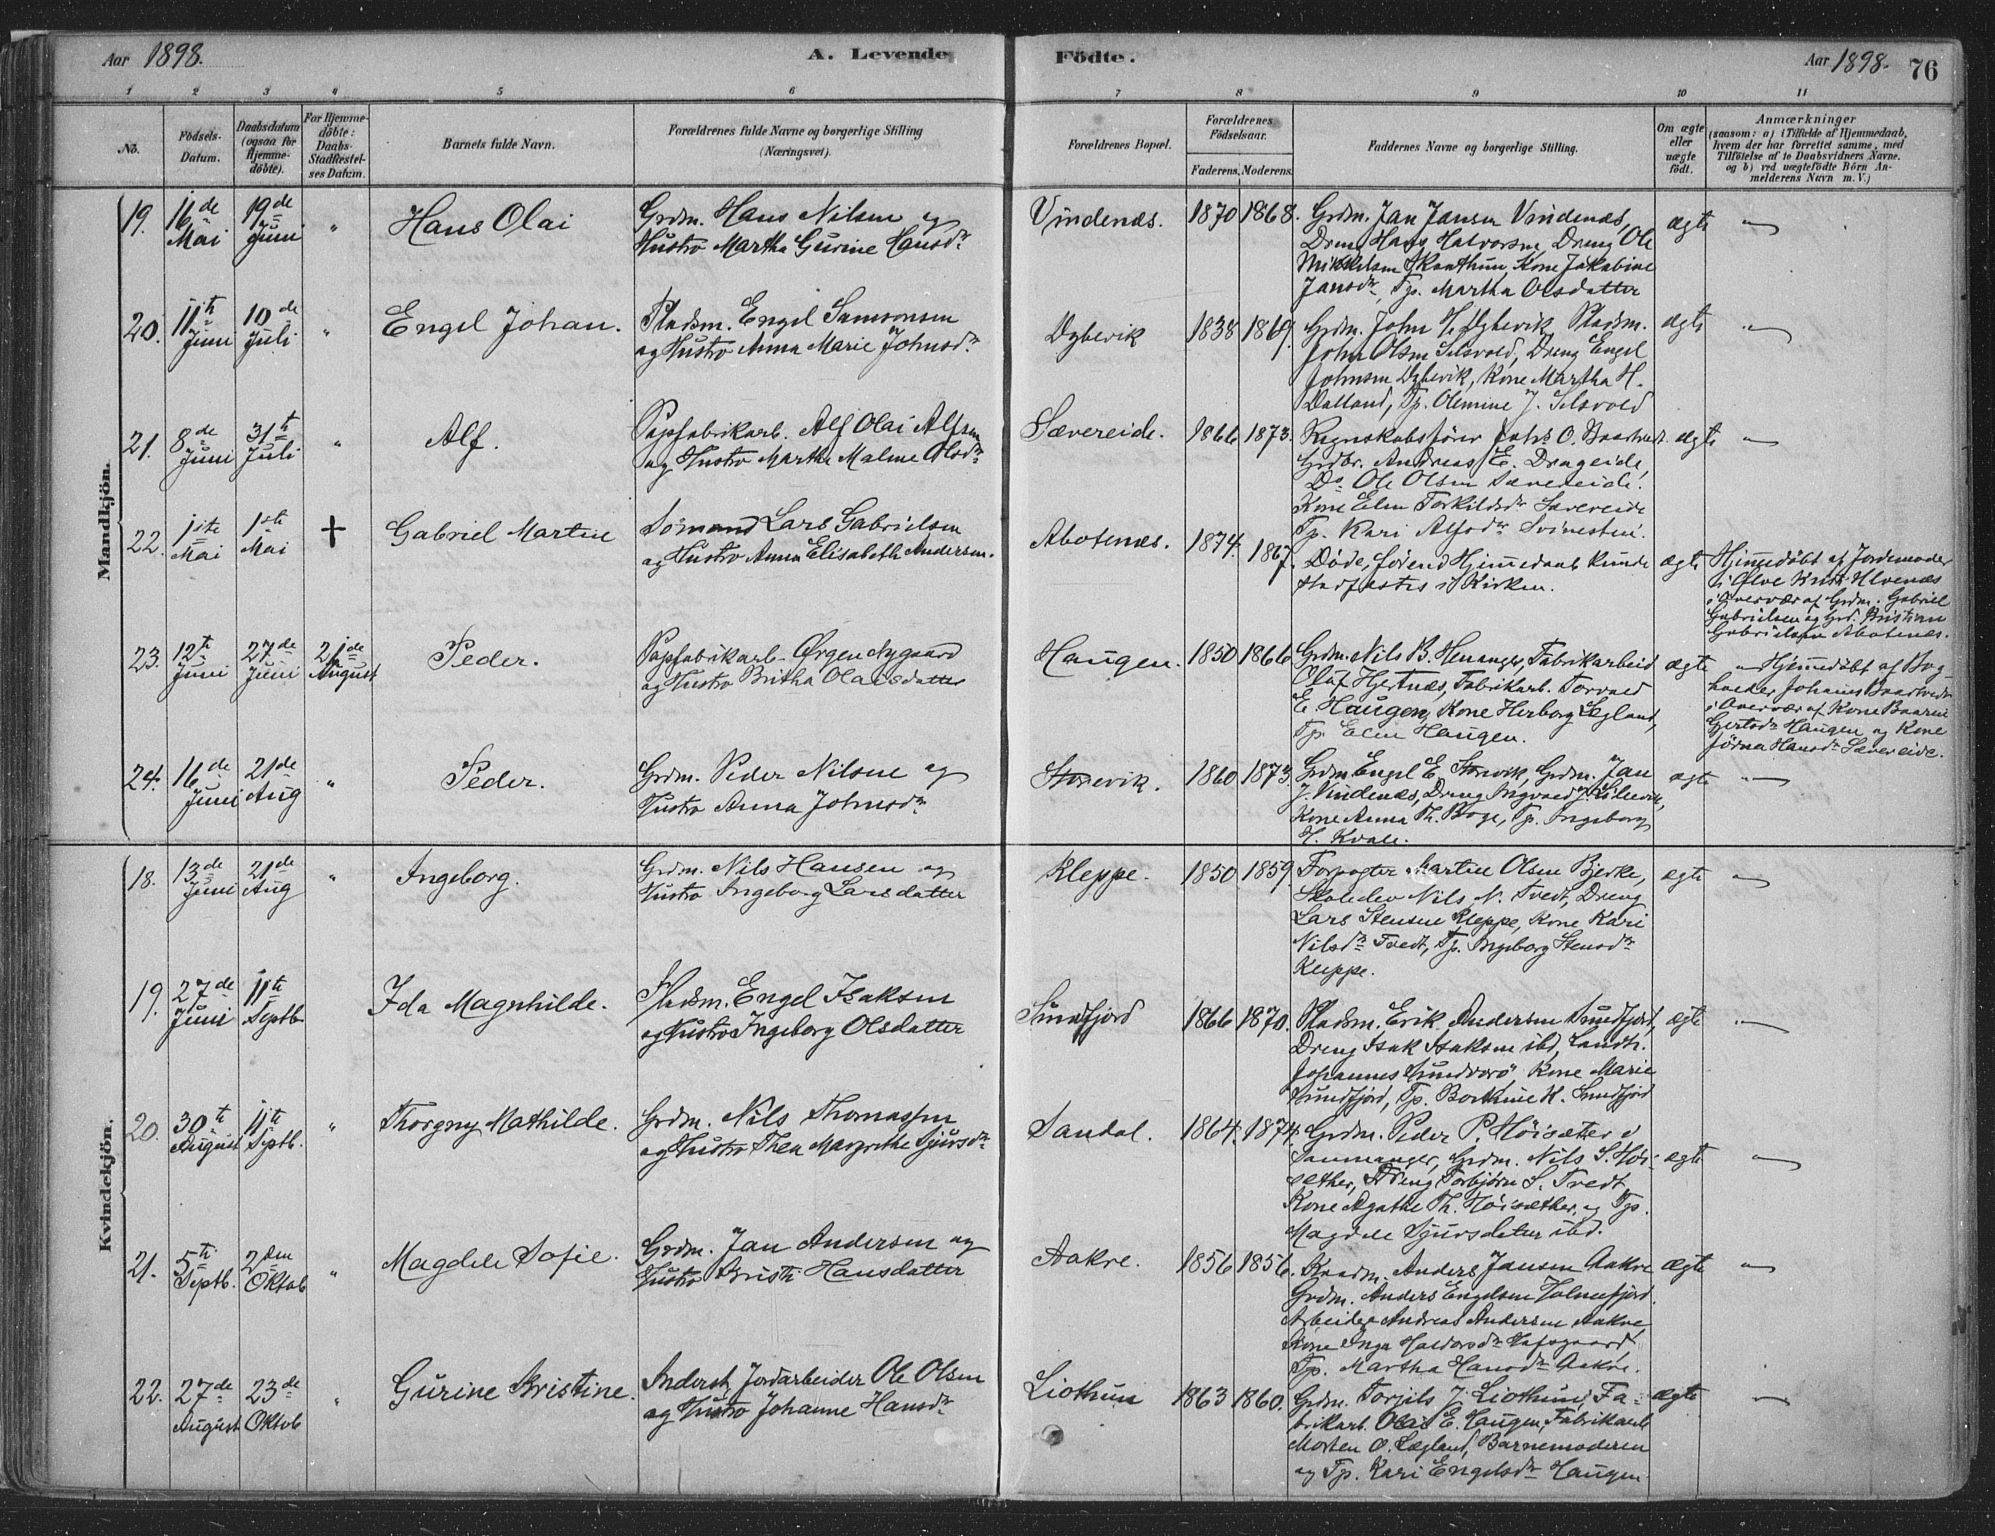 Aar 1898. A. Levende Födte. Aar 1898. 76
1 2 3 4 5 6 7 8 9 10 11
No.
Födsels-
Datum.
Daabsdatum
(ogsaa for
Hjemme-
döbte).
For Hjemme-
döbte:
Daabs-
Stadfæstel-
ses Datum.
Barnets fulde Navn.
Forældrenes fulde Navne og borgerlige Stilling
(Næringsvei).
Forældrenes Bopæl.
Forældrenes
Födselsaar.
Faderens. Moderens.
Faddernes Navne og borgerlige Stilling.
Om ægte
eller
uægte
födt.
Anmærkninger
(saasom: a) i Tilfælde af Hjemmedaab,
hvem der har forrettet samme, med
Tilföielse af to Daabsvidners Navne,
og b) ved uægtefödte Börn An-
melderens Navn m. V.)
Mandkjön.
19.
16de
Mai
19de
Juni
"
Hans Olai
Grdm. Hans Nilsen og
Hustro Martha Gurine Hansdr
Vindenæs.
1870 1868.
Grdm. Jan Jansen Vindenæs,
Dreng Hans Halvorsen, Dreng Ole
Mikkelsen Skarthun, Kone Jakobine
Jansdr, Tp. Martha Olsdatter
ægte
"
20.
11th
Juni
10de
Juli
"
Engel Johan.
Pladsm. Engel Samsonsen
og Hustro Anna Marie Johnsdr
Dybevik
1838 1869.
Grdm. John H. Dybevik Pladsm.
John Olsen Selsvold, Dreng Engel
Johnsen Dybevik, Kone Martha H.
Dalland, Tp. Olemine J. Selsvold
ægte
"
21.
8de
Juni
31th
Juli
"
Alf.
Papfabrikarb. Alf Olai Alfsen
og Hustro Martha Malene Olsdr
Sævereide.
1866 1873.
Regnskabsfører Johs O. Baartvedt.
Grdbr. Andreas E. Drageide,
Do Ole Olsen Sævereide.
Kone Elen Torkildsdr Sævereide
Tp. Kari Alfsdr Svinestien.
ægte
"
22.
1ste
Mai
1ste
Mai
+
Gabriel Martin
Sømand Lars Gabrielsen
og Hustro Anna Elisabeth Andersen.
Abotenæs.
1874. 1867.
Døde, førend Hjemmedaab kunde
stadfæstes i Kirken.
ægte
Hjemmedøbt af Jordemoder
i Ølve
i Overvær af Grdm. Gabriel
Gabrielsen og Grd. Kristian
Gabrielsen Abotenæs.
23.
12th
Juni
27de
Juni
21de
August
Peder.
Papfabrikarb. Ørgen Nygaard
og Hustro Britha Olaisdatter
Haugen.
1850 1866
Grdm. Nils B. Henanger, Fabrikarbeid
Oluf Hjertnæs, Fabrikarb. Torvald
E. Haugen, Kone Herborg Lægland,
Tp. Elen Haugen.
ægte
Hjemmedøbt af Bog-
holder Johannes Baartvedt
i Overvær af Kone Baarni
Gjertsdr Haugen og Kone
Jørna Hansdr Sævereide.
24.
16de
Juni
21de
Aug
"
Peder.
Grdm. Peder Nilsen og
Hustro Anna Johnsdr
Storevik.
1860 1873.
Grdm Engel E. Storevik, Grdm. Jan
J. Vindenæs, Dreng Ingvald J. Lillevik,
Kone Anna Th. Boge, Tp. Ingeborg
H. Kvale.
ægte
"
Kvindekjön.
18.
13de
Juni
21de
Aug
"
Ingeborg.
Grdm. Nils Hansen og
Hustro Ingeborg Larsdatter
Kleppe.
1850 1859.
Forpagter Martin Olsen Bjerke,
Skoleelev Nils N. Tvedt, Dreng
Lars Stensen Kleppe, Kone Kari
Nilsdr Tvedt, Tp. Ingeborg Stensdr
Kleppe.
ægte
"
19.
27de
Juni
11th
Septb.
Ida Magnhilde.
Pladsm. Engel Isaksen
og Hustro Ingeborg Olsdatter
Sundfjord
1866 1870.
Pladsm. Erik Andersen Sundfjord,
Dreng Isak Isaksen ibd, Landh.
Johannes Sundvorø Kone Marie
Sundfjord, Tp. Bertine K. Sundfjord
ægte
"
20.
30th
August
11th
Septb.
"
Thorgny Mathilde.
Grdm. Nils Thomassen
og Hustro Thea Margrethe Sjursdr
Sandal.
1864. 1874.
Grdm. Peder P. Høisæter i
Samnanger, Grdm. Nils S. Høi-
sæther, Dreng Torbjørn S. Tvedt
Kone Agathe Th. Høisæther, og Tp.
Magdele Sjursdatter ibd.
ægte
"
21.
5th
Septb.
2den
Oktob
"
Magdele Sofie.
Grdm. Jan Andersen og
Hustro Kristi Hansdatter
Aakre.
1856 1856.
Kaarm. Anders Jansen Aakre
Grdm. Anders Engelsen Holmefjord.
Arbeider Andreas Andersen Aakre,
Kone Inga Haldorsdr Hafsgaard,
Tp. Martha Hansdr Aakre.
ægte
"
22.
27de
August
23de
Oktob
"
Gurine Kristine.
Inderst, Jordarbeider Ole Olsen
og Hustro Johanne Hansdr
Liothun
1863 1860.
Grdm. Torjils J. Liothun, Fa-
brikarb. Olai E. Haugen, Fabrikarb
Morten O. Lægland, Barnemoderen
og Tp. Kari Engelsdr Haugen
ægte
"